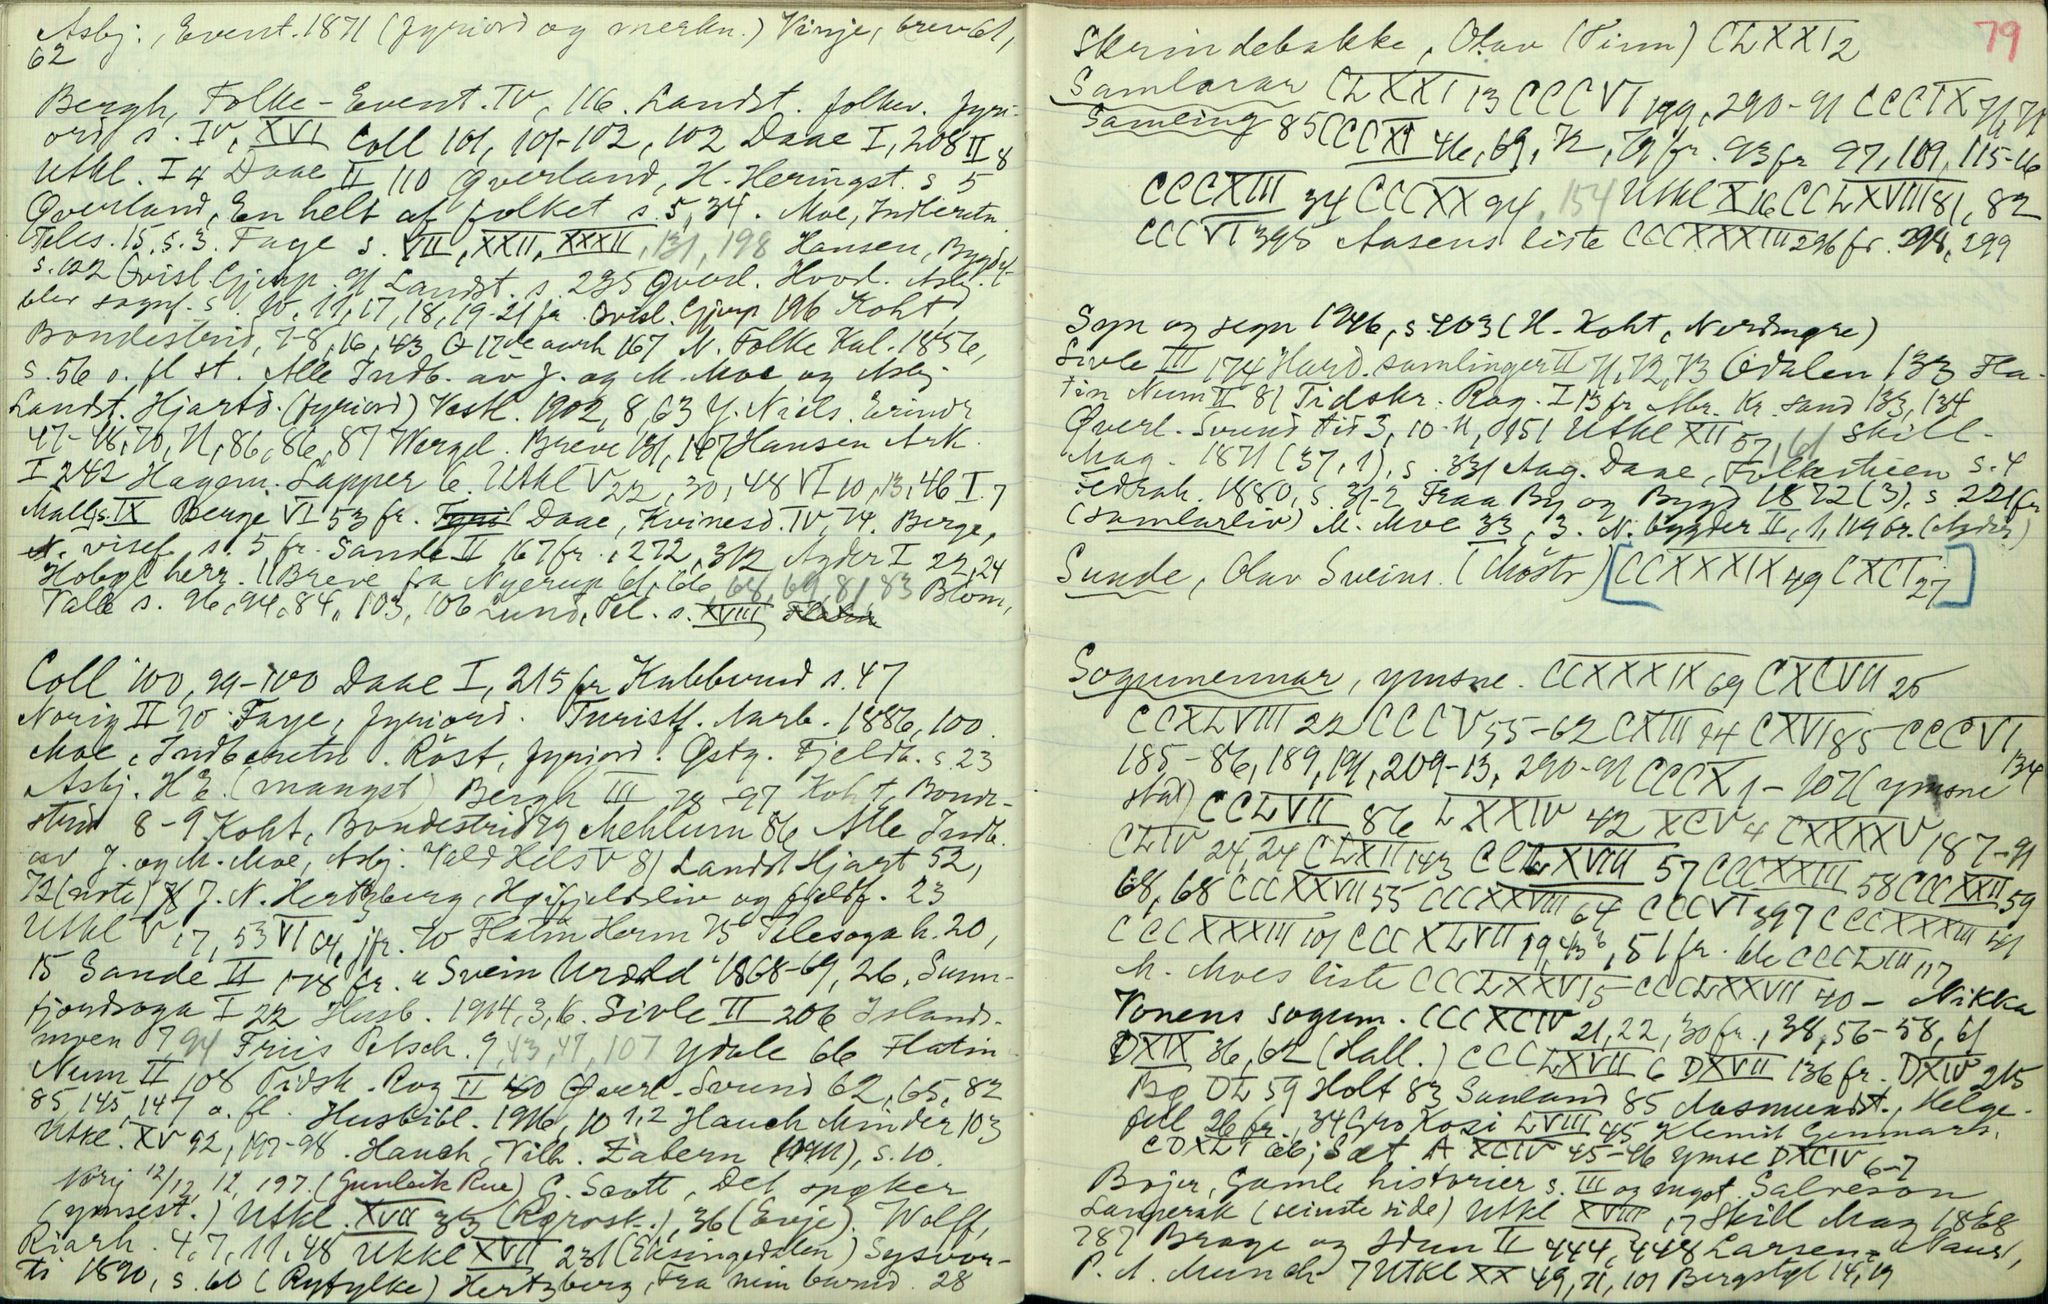 Asbj., Event. 1871 (fyriord og merkn.) Vinje, brev 61,
62
Bergh, Folke-Event. IV, 116. Landst. folkev. fyri-
ord s. IV, XVI Coll 101, 101-102, 102 Daae I, 208 II 8
Utkl. I 4 Daae II 110 Øverland, H. Heringst. s 5
Øverland, En helt af folket s. 5, 34. Moe, Indberetn.
Teles. 15, s. 3. Faye s. VII, XXII, XXXII, 131, 198 Hansen, Bygd
s. 122 Qvisl. Gjerp. 91 Landst. s. 235 Øverl. Hvod. Asbj.
blev sagnf. s. 10, 11, 17, 18, 19-21 fr. Qvisl. Gjerp 196 Koht,
Bondestrid, 7-8, 16, 43 O 17de aarh 167 N. Folke Kal. 1856,
s. 56 o. fl st. Alle Indb. av J. og M. Moe og Asbj.
Landst. Hjartd. (fyriord) Vestl. 1902, 8, 63 Y. Niels. Erindr
47-48, 70, 71, 86, 86, 87 Wergel. Breve 131, 147 Hansen Ark.
I 242 Hagem. Lapper 6. Utkl V 22, 30, 48 VI 10, 13, 46 I 7
Mall s. IX Berge VI 53 fr. Daae, Kvinesd. IV, 74. Berge,
N. visef. s. 5 fr. Sande II 167 fr., 272, 312 Agder I 22, 24
Hobøl herr. 11 Breve fra Nyerup 61, 66, 68, 69, 81, 83 Blom,
Valle s. 96, 94, 84, 103, 106 Lund, Tel. s. XVIII
Coll 100, 99-100 Daae I, 215 fr Kubberud s. 47
Norig II 70 Faye, fyriord. Turistf. Aarb. 1886, 100.
Moe, Indberetn. Röst, fyriord. Østg. Fjeldb. s. 23
Asbj. H E. (mangst) Bergh III 78-97 Koht, Bonde-
strid 8-9 Koht, Bondestrid 79 Mehlum 86 Alle Indb.
av J. og M. Moe, Asbj. Vald Hels V 81 Landst Hjart 52,
72 (note) J. N. Hertzberg, Høifjeldsliv og fjeldf. 23
Utkl V 17, 53 VI 64, jfr. 70 Flatin Herm 75 Telesoga h. 20,
15 Sande II 178 fr. "Svein Uræd" 1868-69, 26, Sunn-
fjordsoga I 22 Husb. 1914, 3, 16. Sivle III 206 Islands-
moen 7 94 Friis Petsch. 9, 43, 47, 107 Ydale 66 Flatin
Num II 108 Tidsk. Rog II 40 Øverl. Svund 62, 65, 82
85, 145, 147 o. fl. Husbibl. 1916, 10 1, 2 Hauch Minder 103
Utkl. XV 92, 197-98. Hauch, Vilh. Zabern (1911), s. 10.
Norig 12/12, 12, 197. (Gunleik Rue) G. Scott, Det spøker
(ymsest.) Utkl. XVII 313 (Rgrosk.), 36 (Evje). Wolff,
Riarh. 4, 7, 11, 48 Utkl XVII 231 (Eksingedalen) Sysvor-
ti 1890, s. 60 (Ryfylke) Hertzberg, Fra min barnd. 28
79
Skrindebakke, Olav (Finn) CLXXI 2
Samlarar CLXXI 13 CCCVI 199, 290-91 CCCIX 71, 71
Samling 85 CCCXI 46, 69, 72, 79 fr. 93 fr 97, 109, 115-16
CCCXIII 34 CCCXX 94, 154 Utkl X 16 CCLXVIII 81, 82
CCCVI 395 Aasens liste CCCXXXIII 296 fr. 298, 299
Syn og segn 1946, s. 403 (H. Koht, Nordmøre)
Sivle III 174 Hard. samlinger II 71, 72, 73 Odalen 133 Fla-
tin Num II 81 Tidskr. Rog. I 13 fr Mbr. Kr. sand 133, 134
Øverl. Svund tid 3, 10-11, 151 Utkl XII 57, 61 Skill-
Mag. 1871 (37, 1), s. 331 Aag. Daae, Folkestien s. 4
Fedrah. 1880, s. 31-2 Fraa By og Bygd 1872 (3), s. 221 fr
(samlarliv) M. Moe 33, 3. N. bygder II, 1, 119 fr. (Agder)
Sunde, Olav Sveins. (Möstr) [CCXXXIX 49 CXCI 27]
Sogumennar, ymsne. CCXXXIX 69 CXCVII 25
CCXLVIII 22 CCCV 55-62 CXIII 44 CXVI 85 CCCVI 134
185-86, 189, 191, 209-13, 290-91 CCCX 1-107 (ymsne
stad) CCLVII 86 LXXIV 42 XCV 4 CXXXXV 187-91
CLIV 24, 24 CLXII 143 CCLXVIII 57 CCCXXIII 58 CCCXXII 59
68, 68 CCCXXVII 55 CCCXXVIII 64 CCCVI 397 CCCXXXIII 41
CCCXXXIII 101 CCCXLVII 19, 43 6, 51 fr. 66 CCCLIII 117
M. Moes liste CCCLXXVI 5 CCCLXXVII 40 - Nikka
Vonens sogum. CCCXCIV 21, 22, 30 fr., 38, 56-58, 61
DXIX 36, 62 (Hall.) CCCLXVII 6 DXVII 136 fr. DXIV 215
Bø DL 59 Holt 83 Sauland 85 Aasmundst., Helge-
fell 26 fr., 34 Gro Kosi LVIII 45 Klemit Gunmarb.
CDXLI 66; Sæt A XCIV 45-46 ymse DXCIV 6-7
Bojer, Gamle historier s. III og mgst. Salveson
Lamperak (seinste side) Utkl XVIII 17 Skill Mag 1868
787 Brage og Idun II 444, 448 Larsen
P. A. Munch 7 Utkl XX 49, 71, 101 Bergstgl 14, 19